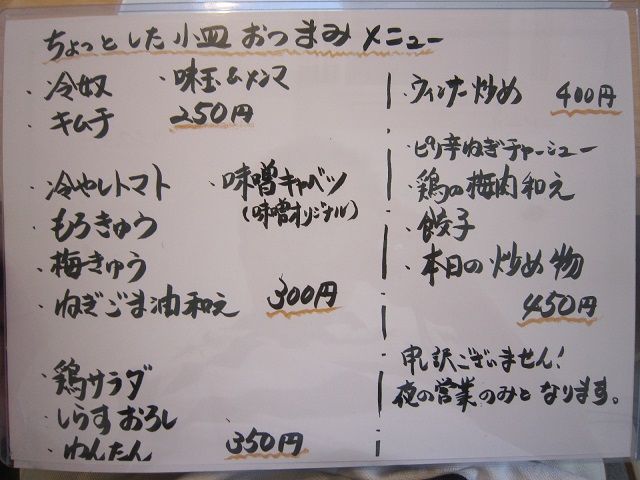 ちょっとした小皿おつまみメニュー
・冷奴 ・味玉&メンマ
・キムチ 250円
・冷やしトマト ・味噌キャベツ
・もろきゅう (味噌オリジナル)
・梅きゅう
・ねぎごま油和え 300円
・鶏サラダ
・しらすおろし
・わんたん 350円
・ウィンナー炒め 400円
・ピリ辛ねぎチャーシュー
・鶏の梅肉和え
・餃子
・本日の炒め物
450円
申し訳ございません!
夜の営業のみとなります。